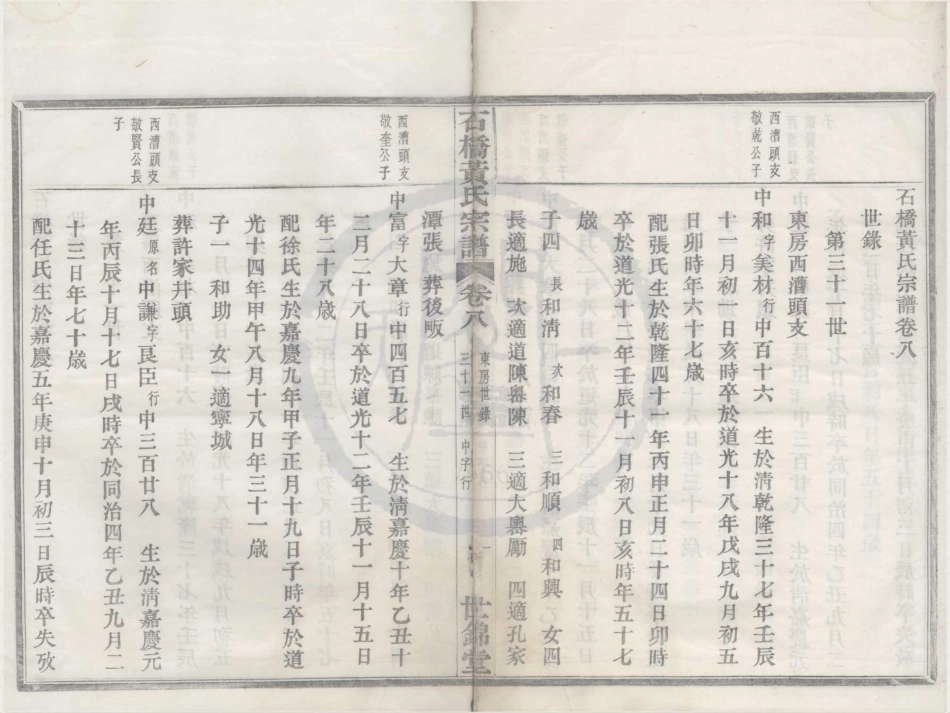 石橋黃氏宗譜卷八
世錄
第三十一世
東房西漕頭支
西漕頭支
敬乾公子
中和字美材行中百十六 生於淸乾隆三十七年壬辰
十一月初四日亥時卒於道光十八年戊戌九月初五
日卯時年六十七歲
配張氏生於乾隆四十一年丙申正月二十四日卯時
卒於道光十二年壬辰十一月初八日亥時年五十七
歲
子四 長和淸 次和春 三和順 四和興 女四
長適施 次適道陳粵陳 三適大嶴勵 四適孔家
石橋黃氏宗譜 卷八 東房世錄 三十一世 中字行 一 世錦堂
潭張 葬後畈
西漕頭支
敬奎公子
中富字大章行中四百五七 生於淸嘉慶十年乙丑十
三月二十八日卒於道光十二年壬辰十一月十五日
年二十八歲
配徐氏生於嘉慶九年甲子正月十九日子時卒於道
光十四年甲午八月十八日年三十一歲
子一和助 女一適寧城
葬許家井頭
西漕頭支
敬賢公長
子
中廷原名中謙字艮臣行中三百廿八 生於淸嘉慶元
年丙辰十月十七日戌時卒於同治四年乙丑九月二
十三日年七十歲
配任氏生於嘉慶五年庚申十月初三日辰時卒失攷